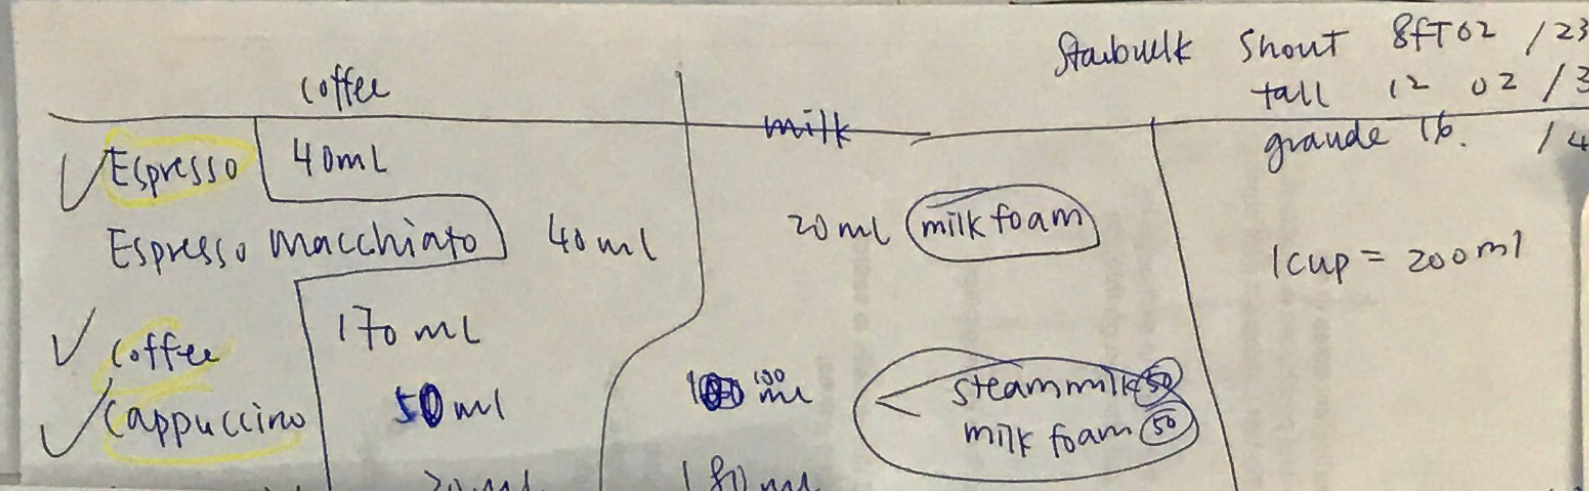 Starbulk Shout 8fToz /23
tall 12 oz /3
coffee
milk
grande 16. /4
Espresso 40mL
Espresso macchiato 40ml 20ml milk foam
1cup = 200ml
coffee 170mL
Cappuccino 50ml 100 ml steam milk 50
milk foam 50
180ml